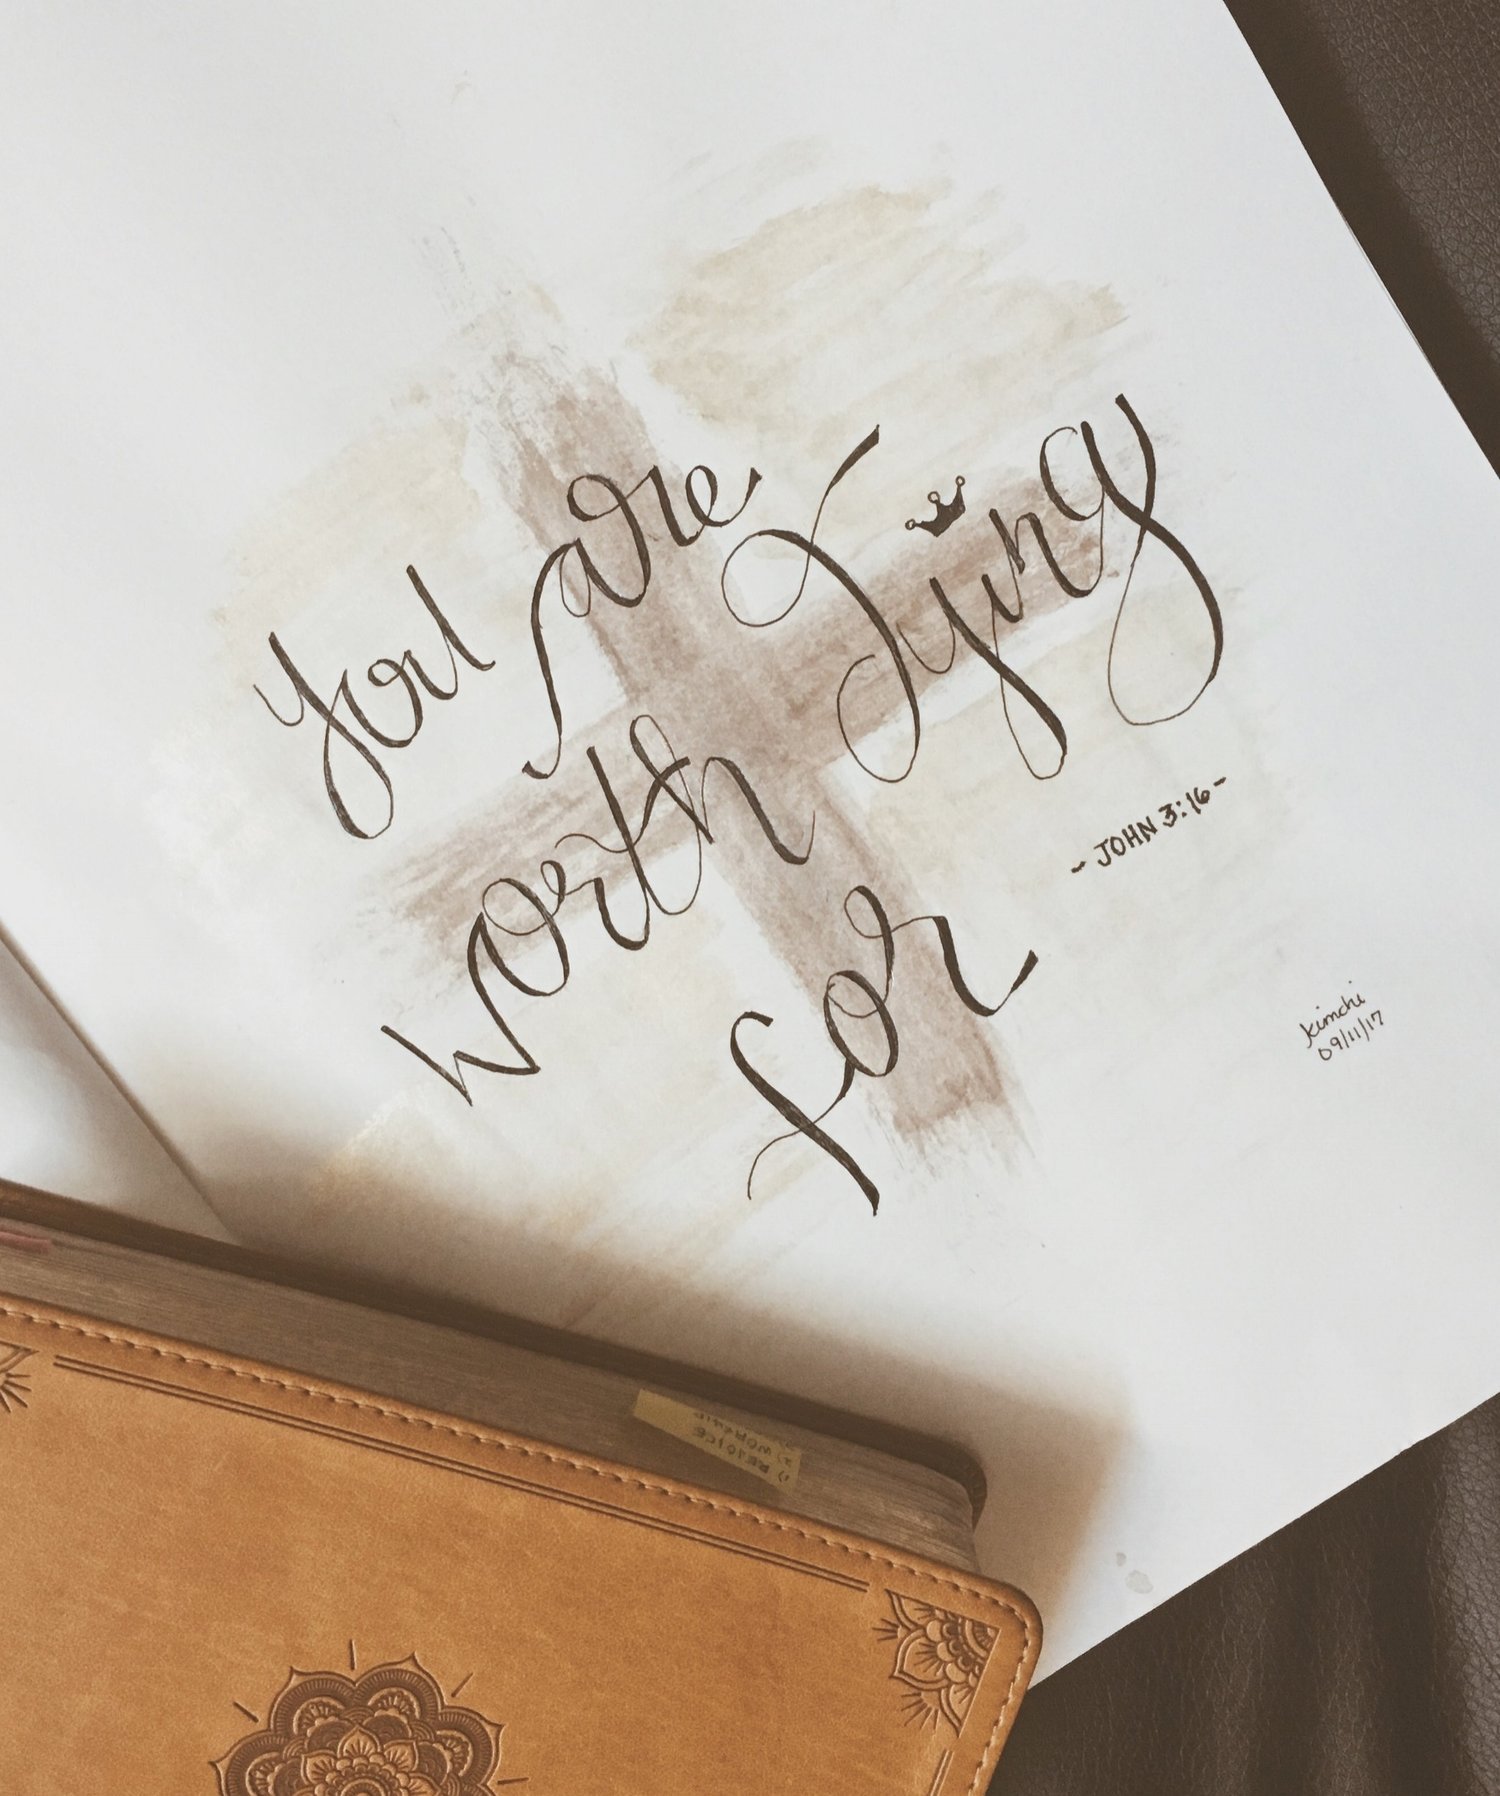 you are
worth dying
for
- JOHN 3:16 -
kimchi
09/11/17
1) REJOICE
2) WORSHIP